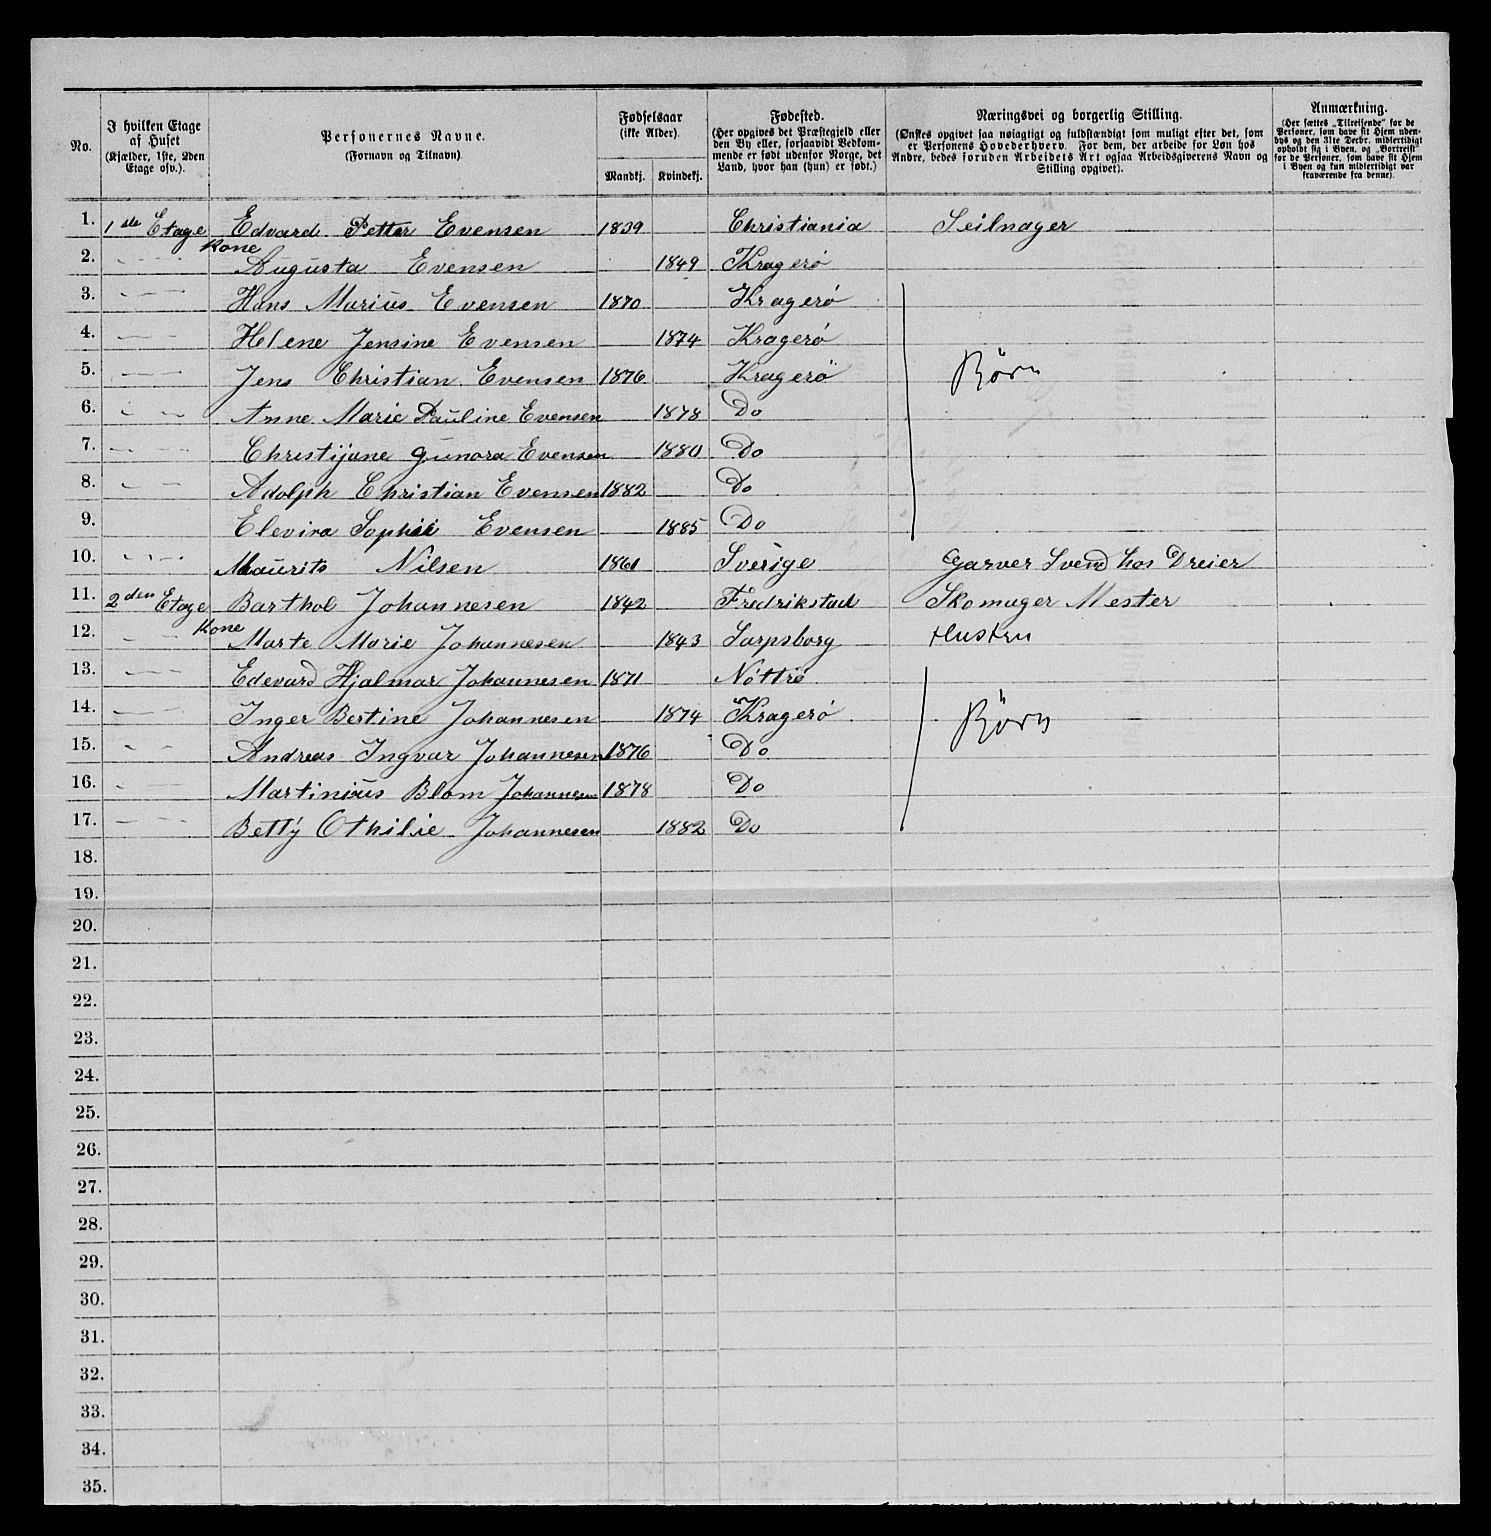 No.
I hvilken Etage af Huset (Kjælder, 1ste, 2den Etage osv.).
Personernes Navne. (Fornavn og Tilnavn).
Fødselsaar (ikke Alder). Mandkj. Kvindekj.
Fødested. (Her opgives det Præstegjeld eller den By eller, forsaavidt Vedkommende er født udenfor Norge, det Land, hvor han (hun) er født.)
Næringsvei og borgerlig Stilling. (Ønskes opgivet saa nøiagtigt og fuldstændigt som muligt efter det, som er Personens Hovederhverv. For dem, der arbeide for Løn hos Andre, bedes foruden Arbeidets Art ogsaa Arbeidsgiverens Navn og Stilling opgivet).
Anmærkning. (Her sættes „Tilreisende“ for de Personer, som have sit Hjem udenbys og den 31te Decbr. midlertidigt opholdt sig i Byen, og „Bortreist“ for de Personer, som have sit Hjem i Byen og kun midlertidigt var fraværende fra denne).
1. 1ste Etage Edvard Petter Evensen 1839 Christiania Seilmager
2. Kone Augusta Evensen 1849 Kragerø
3. Hans Marius Evensen 1870 Kragerø
4. Helene Jensine Evensen 1874 Kragerø
5. Jens Christian Evensen 1876 Kragerø Børn
6. Anne Marie Pauline Evensen 1878 Do
7. Christijane Gunora Evensen 1880 Do
8. Adolph Christian Evensen 1882 Do
9. Elevira Sophie Evensen 1885 Do
10. Maurits Nilsen 1861 Sverige Garver Svend hos Dreier
11. 2den Etage Barthol Johannesen 1842 Fredrikstad Skomager Mester
12. Kone Marte Marie Johannesen 1843 Sarpsborg Hustru
13. Edevard Hjalmar Johannesen 1871 Nøttrø
14. Inger Bertine Johannesen 1874 Kragerø Børn
15. Andreas Ingvar Johannesen 1876 Do
16. Martinius Blom Johannesen 1878 Do
17. Betty Othilie Johannesen 1882 Do
18.
19.
20.
21.
22.
23.
24.
25.
26.
27.
28.
29.
30.
31.
32.
33.
34.
35.